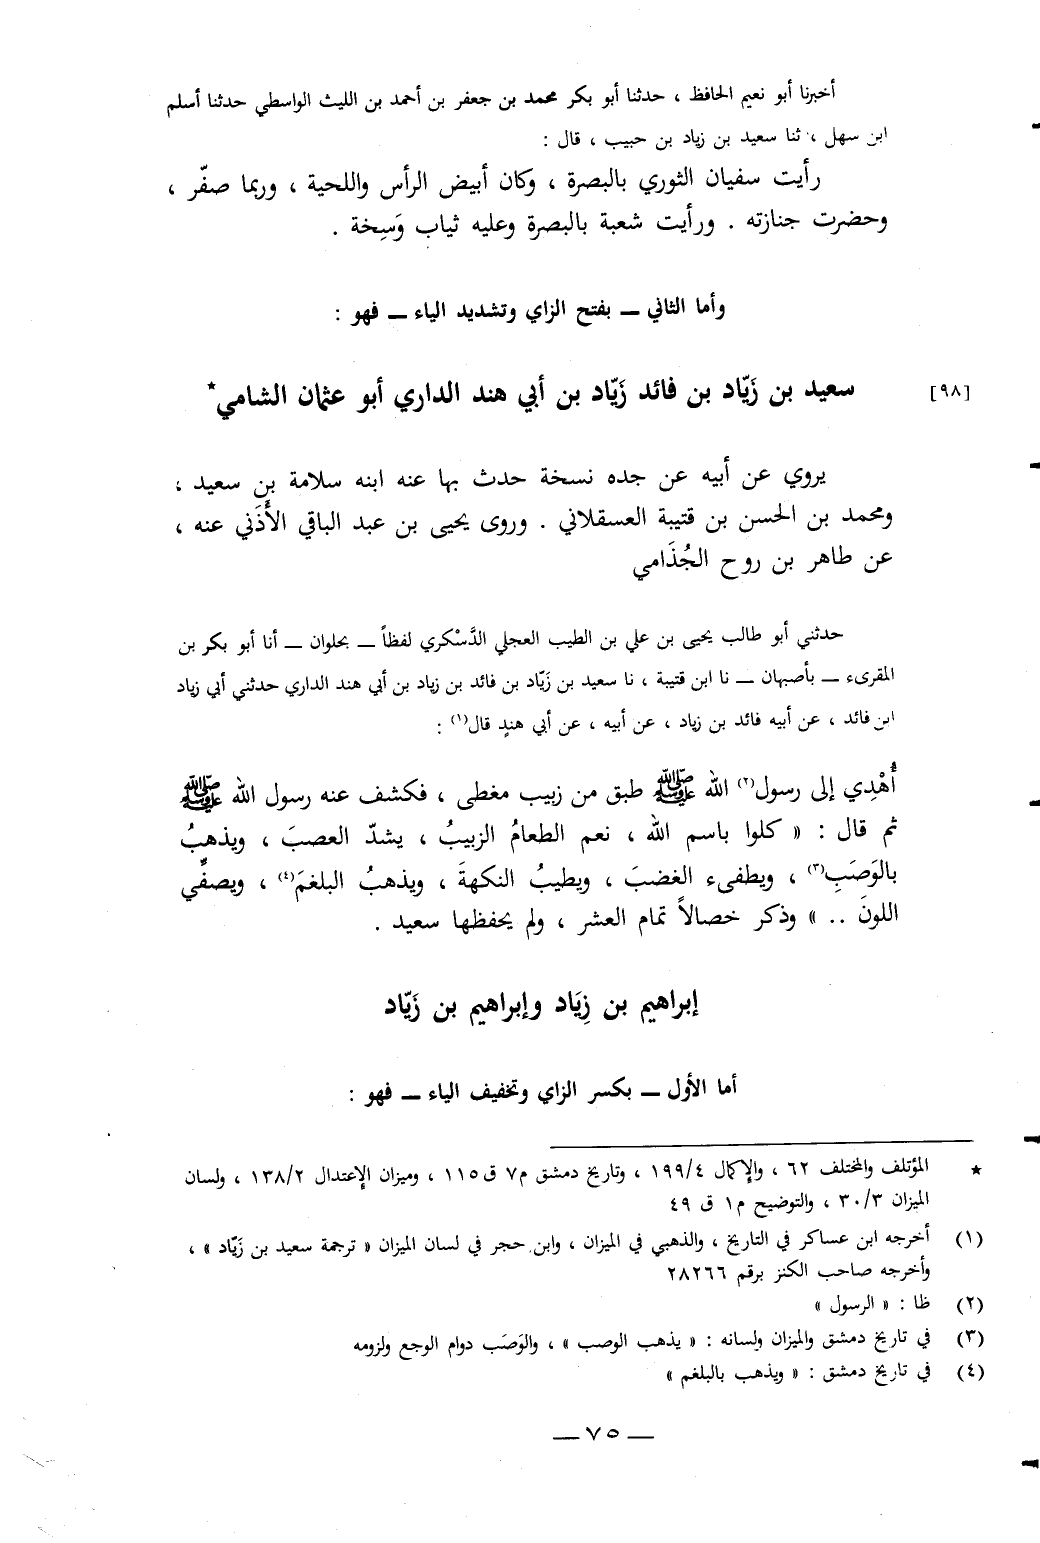 أخبرنا أبو نعيم الحافظ ، حدثنا أبو بكر محمد بن جعفر بن أحمد بن الليث الواسطي حدثنا أسلم
ابن سهل ، ثنا سعيد بن زياد بن حبيب ، قال :
رأيت سفيان الثوري بالبصرة ، وكان أبيض الرأس واللحية ، وربما صفّر ،
وحضرت جنازته . ورأيت شعبة بالبصرة وعليه ثياب وَسِخة .
وأما الثاني ــ بفتح الزاي وتشديد الياء ــ فهو :
[٩٨] سعيد بن زَيّاد بن فائد زَيّاد بن أبي هند الداري أبو عثمان الشامي*
يروي عن أبيه عن جده نسخة حدث بها عنه ابنه سلامة بن سعيد ،
ومحمد بن الحسن بن قتيبة العسقلاني . وروى يحيى بن عبد الباقي الأَذَني عنه ،
عن طاهر بن روح الجُذَامي
حدثني أبو طالب يحيى بن علي بن الطيب العجلي الدَّسْكري لفظاً ــ بحلوان ــ أنا أبو بكر بن
المقرىء ــ بأصبهان ــ نا ابن قتيبة ، نا سعيد بن زَيّاد بن فائد بن زياد بن أبي هند الداري حدثني أبي زياد
ابن فائد ، عن أبيه فائد بن زياد ، عن أبيه ، عن أبي هندٍ قال(١) :
أُهْدِي إلى رسول(٢) الله ﷺ طبق من زبيب مغطى ، فكشف عنه رسول الله ﷺ
ثم قال : « كلوا باسم الله ، نعم الطعامُ الزبيبُ ، يشدّ العصبَ ، ويذهبُ
بالوَصَبِ(٣) ، ويطفىء الغضبَ ، ويطيبُ النكهةَ ، ويذهبُ البلغمَ(٤) ، ويصفِّي
اللونَ .. » وذكر خصالاً تمام العشر ، ولم يحفظها سعيد .
إبراهيم بن زِيَاد وإبراهيم بن زَيّاد
أما الأول ــ بكسر الزاي وتخفيف الياء ــ فهو :
★ المؤتلف والمختلف ٦٢ ، والإكمال ١٩٩/٤ ، وتاريخ دمشق م٧ ق١١٥ ، وميزان الإعتدال ١٣٨/٢ ، ولسان
الميزان ٣٠/٣ ، والتوضيح م١ ق ٤٩
(١) أخرجه ابن عساكر في التاريخ ، والذهبي في الميزان ، وابن حجر في لسان الميزان « ترجمة سعيد بن زَيّاد » ،
وأخرجه صاحب الكنز برقم ٢٨٢٦٦
(٢) ظا : « الرسول »
(٣) في تاريخ دمشق والميزان ولسانه : « يذهب الوصب » ، والوَصَب دوام الوجع ولزومه
(٤) في تاريخ دمشق : « ويذهب بالبلغم »
ــ ٧٥ ــ